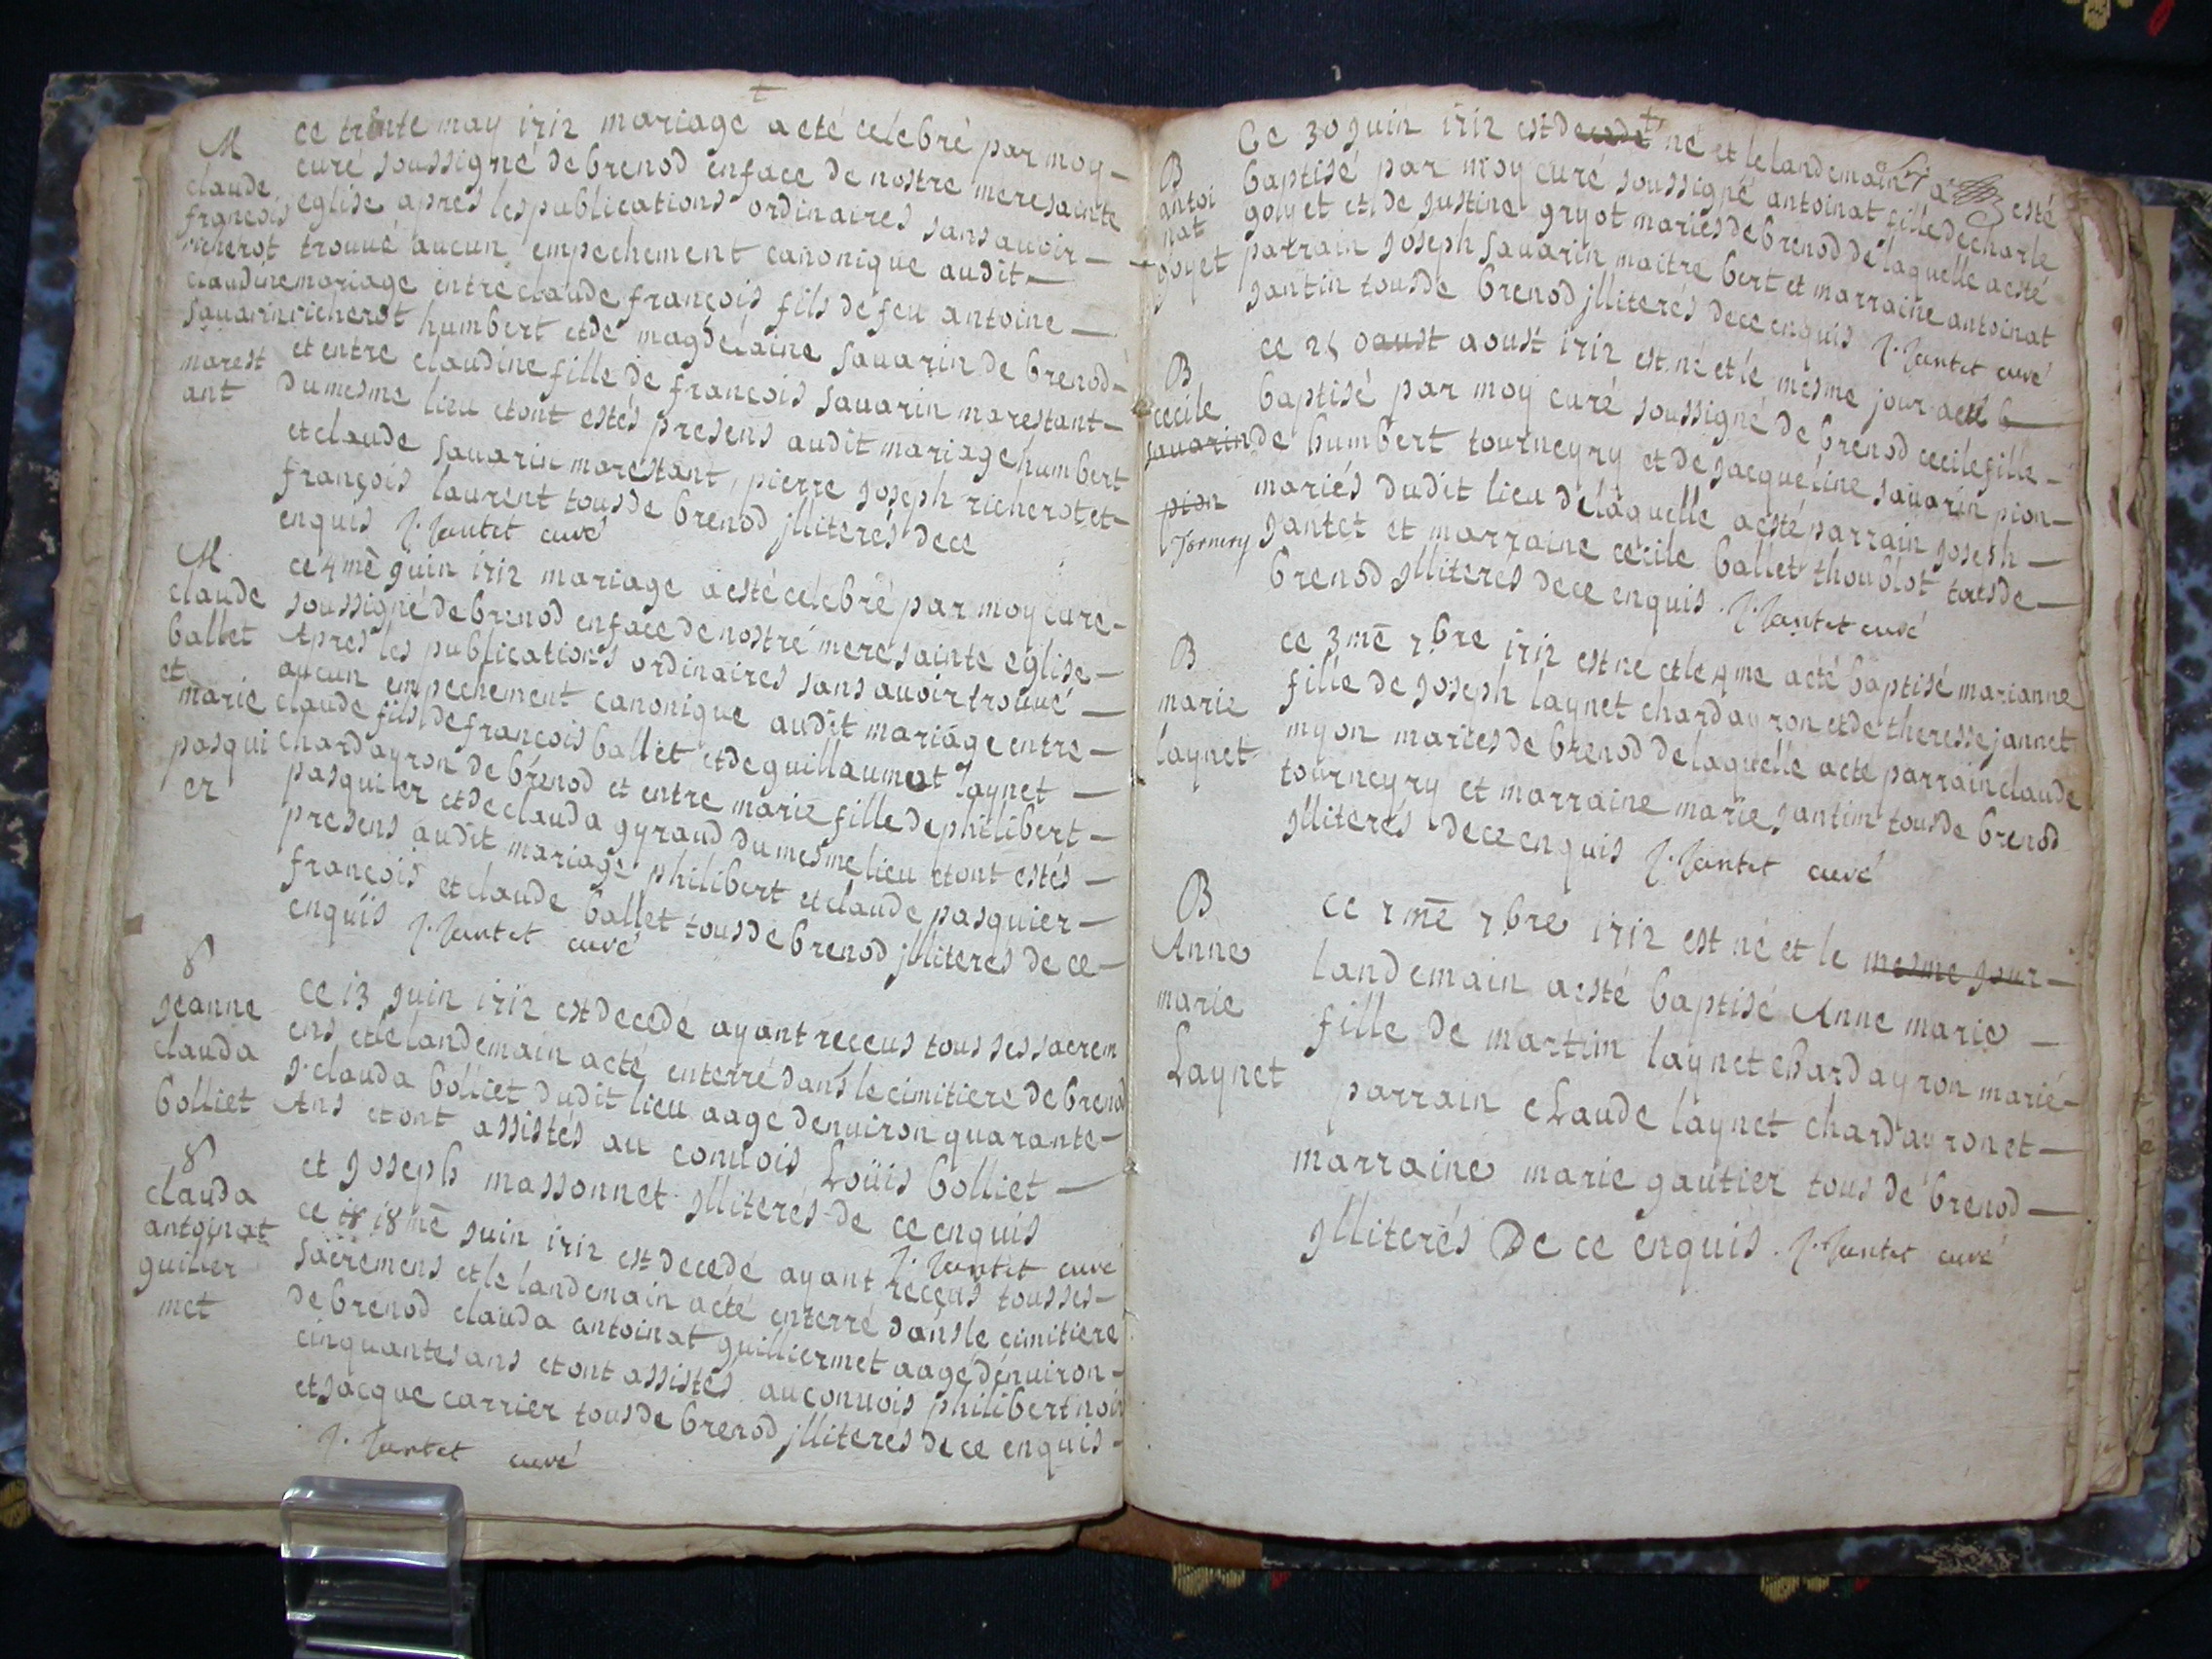 M
claude
francois
richerot
claudine
sauarin
marest
ant
ce trente may 1712 mariage a eté celebré par moy
curé soussigné de brenod en face de nostre mere sainte
eglise apres les publications ordinaires sans auoir
trouué aucun empechement canonique audit
mariage entre claude françois fils de feu antoine
richerot humbert et de magdelaine sauarin de brenod
et entre claudine fille de françois sauarin marestant
du mesme lieu et ont estés presens audit mariage humbert
et claude sauarin marestant, pierre joseph richerot et
françois laurent tous de brenod jlliterés de ce
enquis J. Jantet curé
M
claude
ballet
et
marie
pasqui
er
ce 4 me juin 1712 mariage a esté celebré par moy curé
soussigné de brenod en face de nostre mere sainte eglise
Apres les publications ordinaires sans auoir trouué
aucun empechement canonique audit mariage entre
claude fils de françois ballet et de guillaumat laynet
chardayron de brenod et entre marie fille de philibert
pasquier et de clauda gyraud du mesme lieu et ont estés
presens audit mariage philibert et claude pasquier
françois et claude ballet tous de brenod jlliterés de ce
enquis J. Jantet curé
jeanne
clauda
bolliet
ce 13 juin 1712 est decedé ayant reçeus tous ses sacrem
ens et le landemain a eté enterré dans le cimitiere de brenod
j. clauda bolliet dudit lieu aage denuiron quarante
Ans et ont assistés au conuois Loüis bolliet
et joseph massonnet jlliterés de ce enquis
J. Jantet curé
clauda
antoinat
guillier
met
ce 18 18 me juin 1712 est decedé ayant reçeus tous ses
sacremens et le landemain a eté enterré dans le cimitiere
de brenod clauda antoinat guilliermet aagé denuiron
cinquantes ans et ont assistés au conuois philibert noir
et jacque carrier tous de brenod jlliteres de ce enquis
J. Jantet curé
B
antoi
nat
goyet
Ce 30 juin 1712 est decedé né et le landemain a esté
baptisé par moy curé soussigné antoinat fille de charle
goyet et de justine gryot mariés de brenod de laquelle a esté
parrain joseph sauarin maitre bert et marraine antoinat
jantin tous de brenod jlliterés de ce enquis J. Jantet curé
B
cecile
sauarin
pion
Tornery
ce 25 oaust aoust 1712 est né et le mesme jour a eté b
baptisé par moy curé soussigné de brenod cecile fille
de humbert tourneyry et de jacqueline sauarin pion
mariés dudit lieu de laquelle a esté parrain joseph
jantet et marraine cecile ballet thoublot tous de
brenod jlliterés de ce enquis. J. Jantet curé
B
marie
laynet
ce 3 me 7bre 1712 est né et le 4 me a eté baptisé marianne
fille de joseph laynet chardayron et de theresse jannet
myon mariés de brenod de laquelle a eté parrain claude
tourneyry et marraine marie jantim tous de brenod
jlliterés de ce enquis J. Jantet curé
B
Anne
marie
Laynet
ce 7 me 7bre 1712 est né et le mesme jour
landemain a esté baptisé Anne marie
fille de martim laynet chardayron marié
parrain claude laynet chardayron et
marraine marie gautier tous de brenod
jlliterés De ce enquis. J. Jantet curé